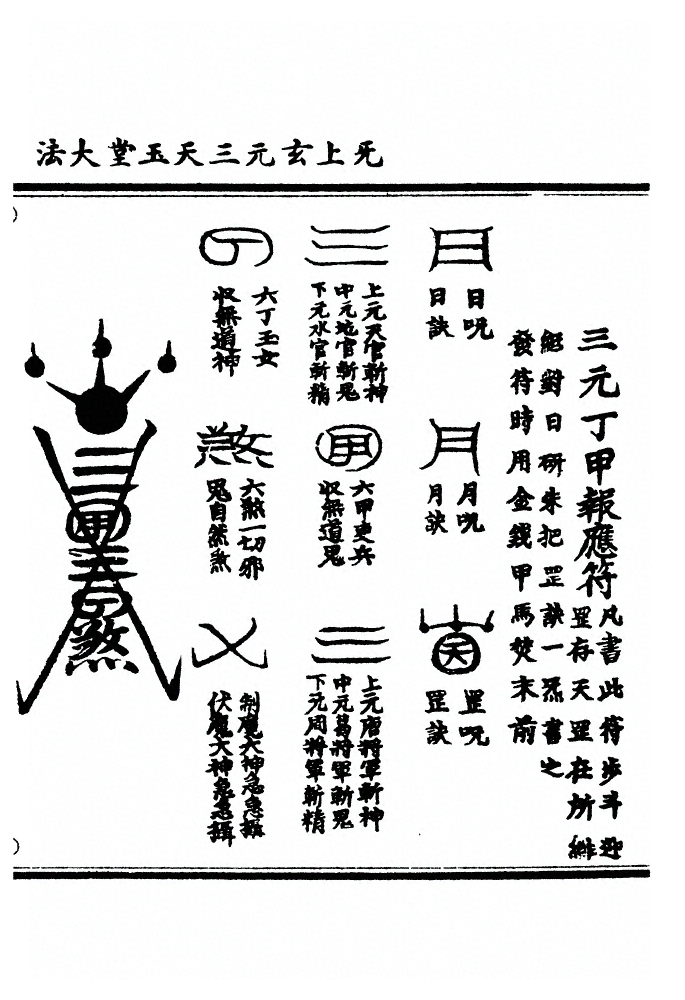 无上玄元三天玉堂大法
三元丁甲報應符
凡書此符步斗迎
罡存天罡在所
絕對日研朱把罡訣一炁書之
發符時用金錢甲馬焚末前
日
日呪
日訣
月
月呪
月訣
天
罡呪
罡訣
三
上元天官斬神
中元地官斬鬼
下元水官斬精
甲
六甲吏兵
収無道鬼
三
上元唐將軍斬神
中元葛將軍斬鬼
下元周將軍斬精
六丁玉女
収無道神
煞
六煞一切邪
鬼自然煞
制魔大神急急攝
伏魔大神急急攝
三
甲
三
煞